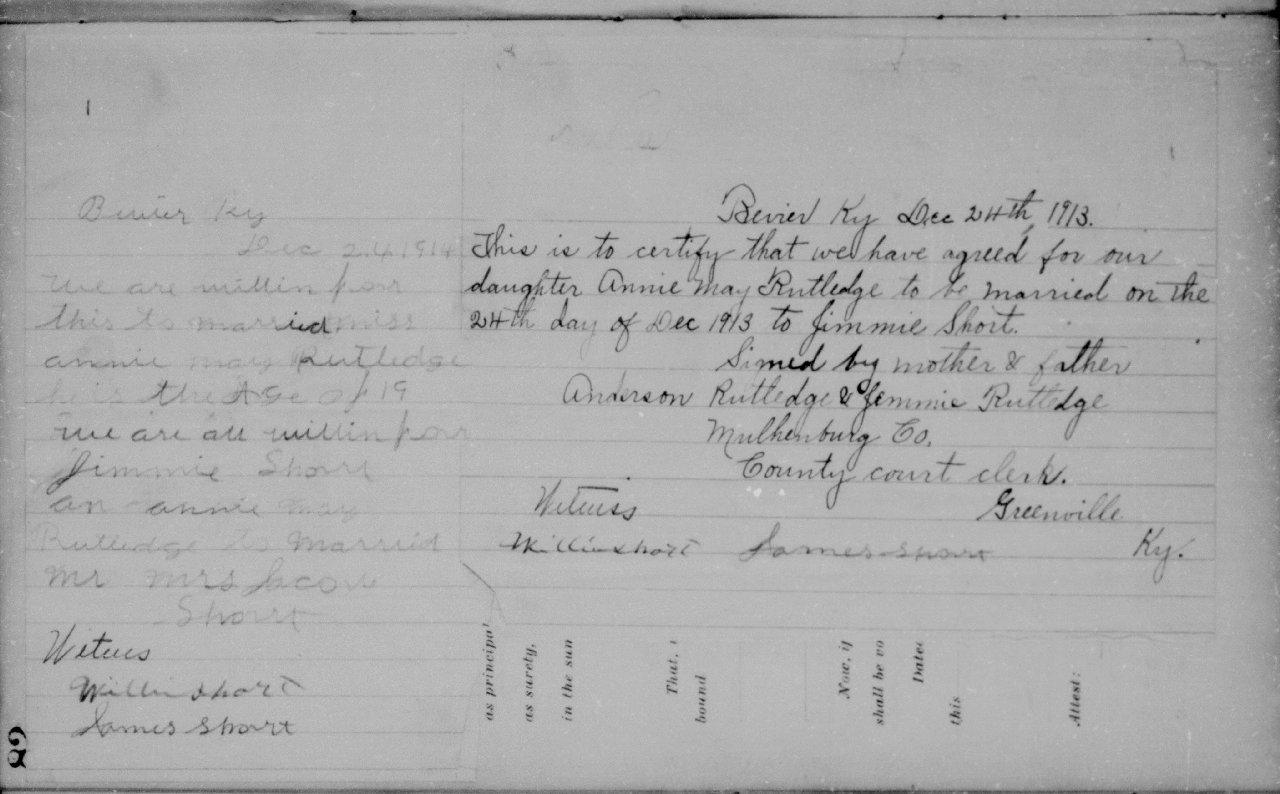 Bevier Ky
Dec 24 1914
We are willin for
this to married miss
annie may Rutledge
he is the Age of 19
we are all willin for
Jimmie Short
an annie may
Rutledge to married
Mr Mrs
Short
Witnes
Willie Short
James Short
Bevier Ky Dec 24th, 1913.
This is to certify that we have agreed for our
daughter Annie May Rutledge to be married on the
24th day of Dec 1913 to Jimmie Short.
Simed by mother & father
Anderson Rutledge & Jemmie Rutledge
Mulhenburg Co.
County court clerk.
Witniss Greenville
Willie Short James Short Ky.
as principal
as surety,
in the sum
That,
bound
Now, if
shall be vo
Date
this
Attest: